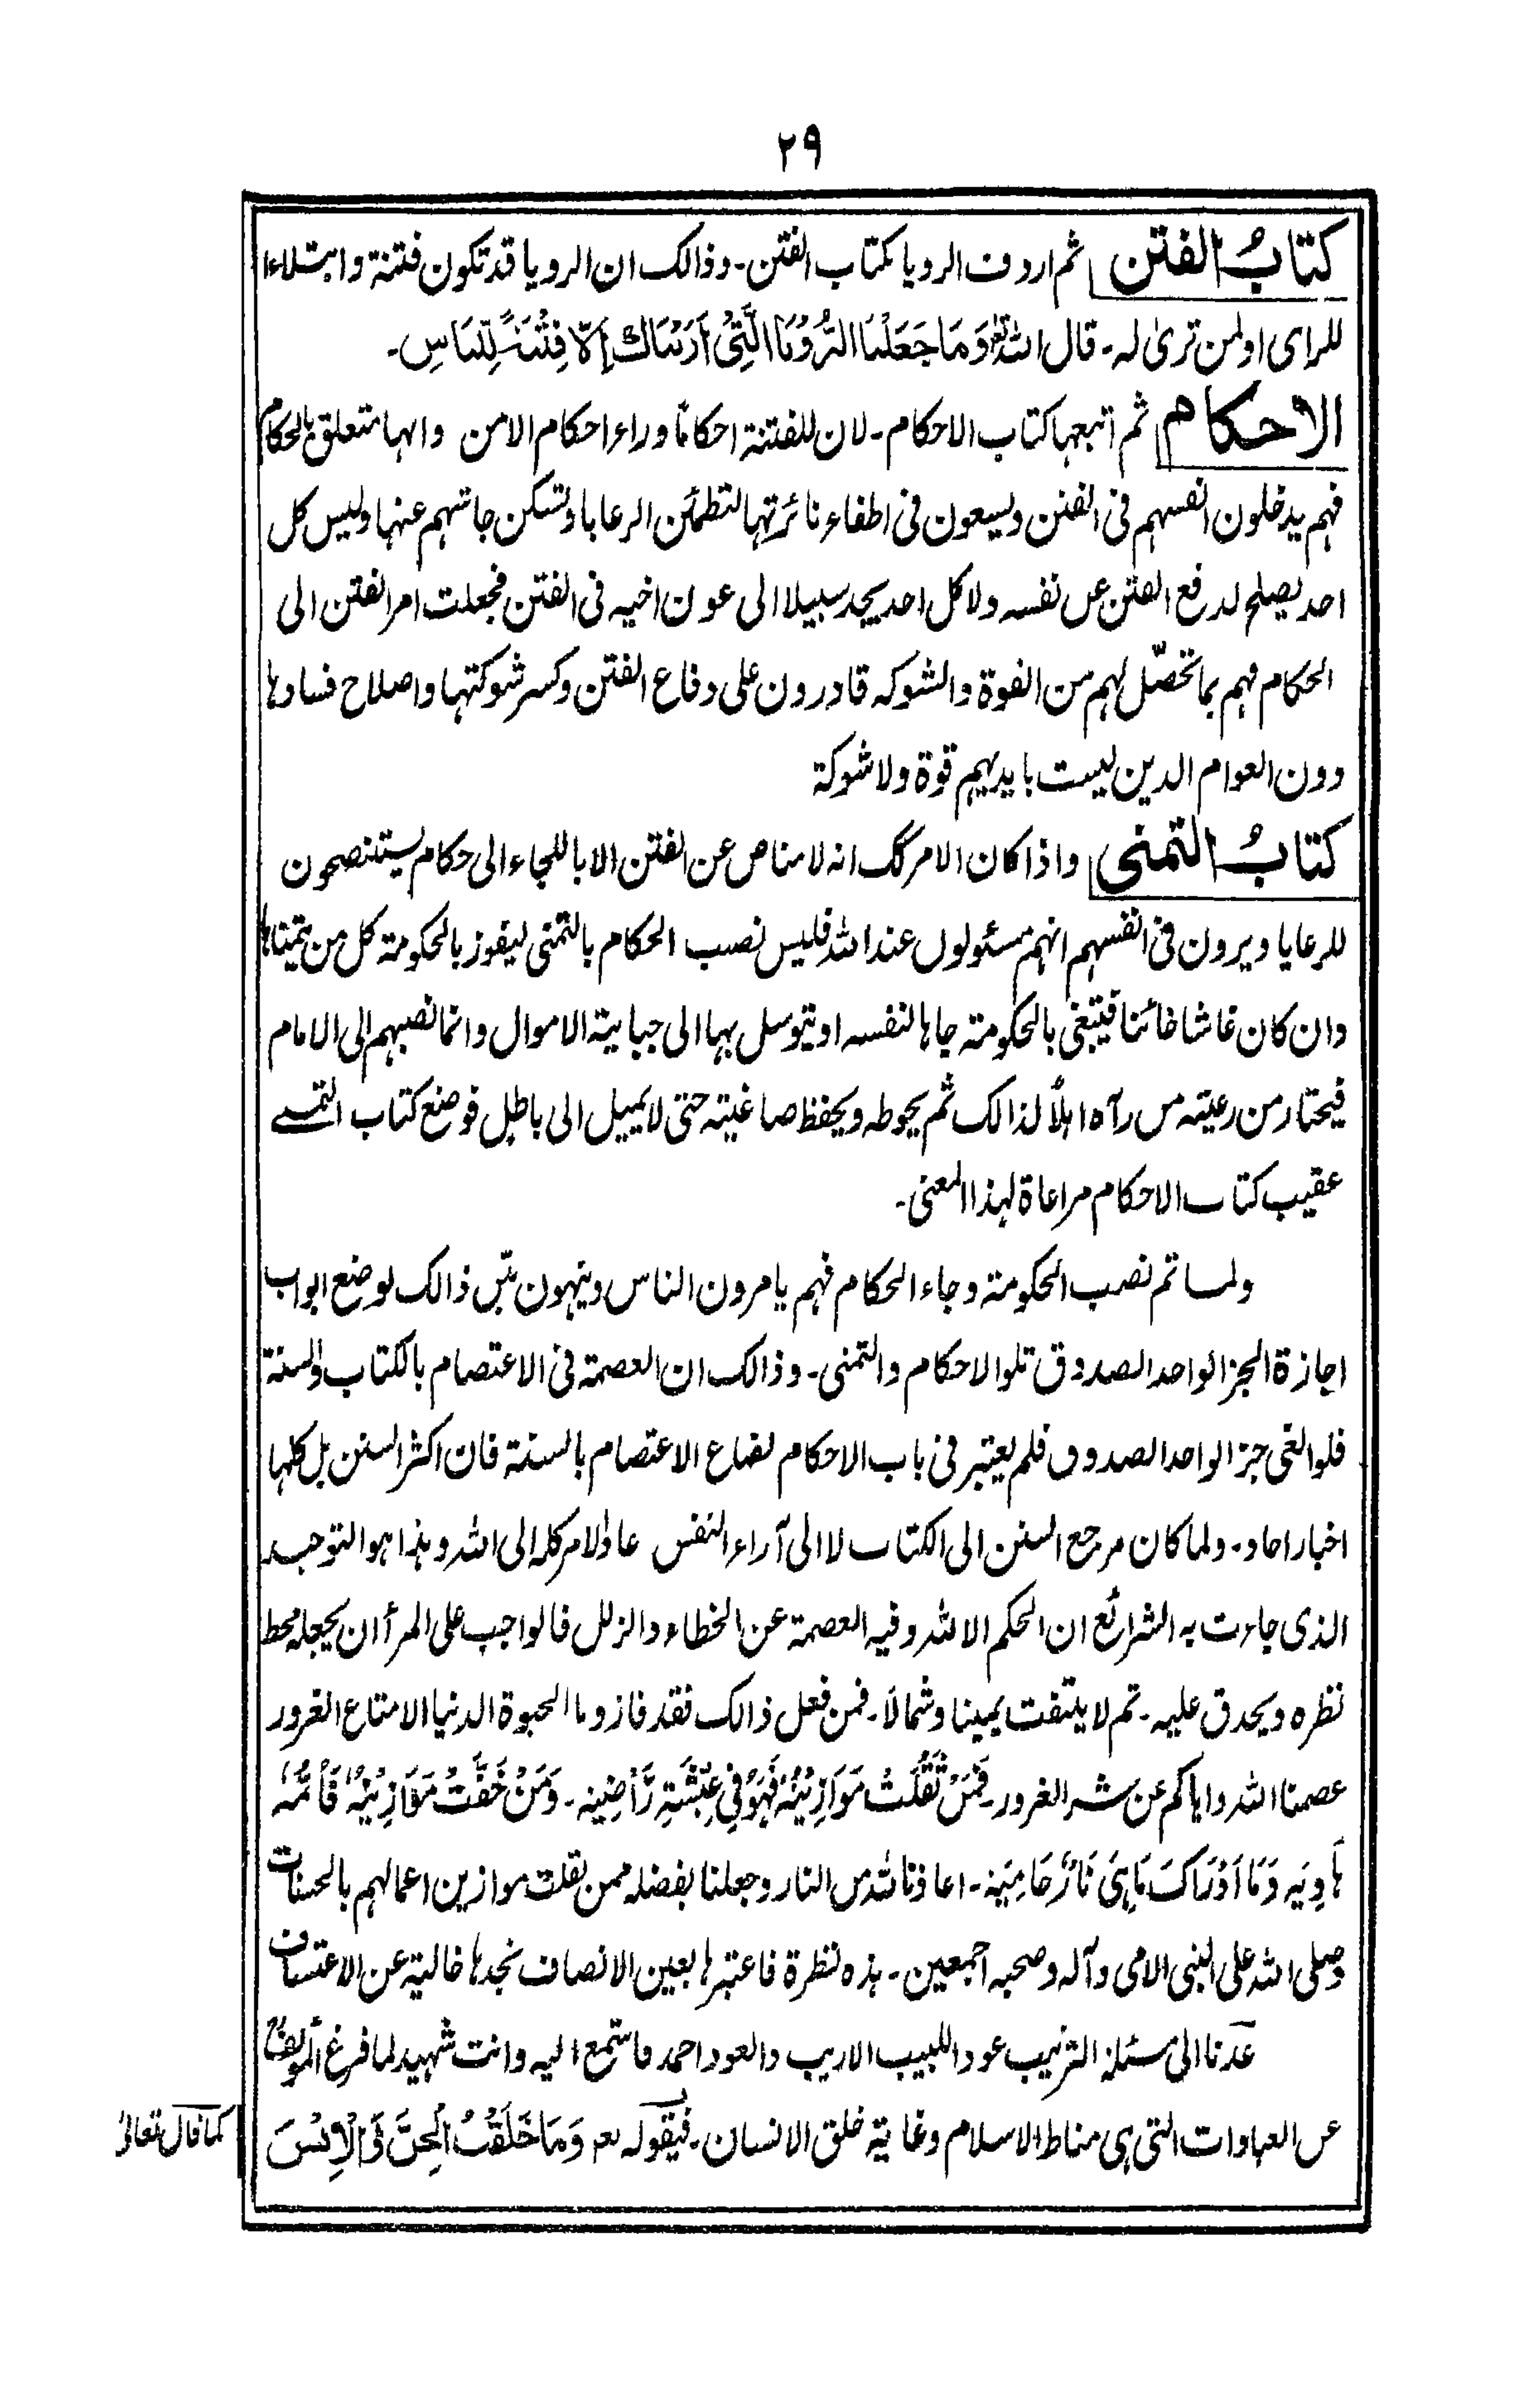 ٢٩
كتابُ الفتن ثم اردف الرويا بكتاب الفتن۔ وذالك ان الرويا قد تكون فتنة وابتلاءا
للرای اولمن تریٰ له۔ قال الله تعالیٰ وَمَا جَعَلْنَا الرُّوْيَا الَّتِیْ اَرَيْنَاكَ اِلَّا فِتْنَةً لِّلنَّاسِ۔
الاحكام ثم اتبعها كتاب الاحكام۔ لان للفتنة احكامًا وراء احكام الامن وانها متعلق بالحكام
فهم يدخلون انفسهم فی الفتن ويسعون فی اطفاء نائرتها لتطمئن الرعايا وتسكن جاشهم عنها وليس كل
احد يصلح لدفع الفتن عن نفسه ولا كل احد يجد سبيلا الی عون اخيه فی الفتن فجعلت امر الفتن الی
الحكام فهم بما تحصّل لهم من القوة والشوكه قادرون علی دفاع الفتن وكسر شوكتها واصلاح فسادها
دون العوام الذين ليست بايديهم قوة ولا شوكة
كتابُ التمنی واذا كان الامر كك انه لا مناص عن الفتن الا باللجاء الی حكام يستنصحون
للرعايا ويرون فی انفسهم انهم مسئولون عند الله فليس نصب الحكام بالتمنی ليفوز بالحكومة كل من يتمناها
وان كان غاشا خائنا فيبتغی بالحكومة جاها لنفسه او يتوسل بها الی جباية الاموال وانما نصبهم الی الامام
فيختار من رعيته من رآه اهلاً لذالك ثم يحوطه ويحفظ صاغيته حتی لا يميل الی باطل فوضع كتاب التمنے
عقيب كتاب الاحكام مراعاة لهذا المعنی۔
ولما تم نصب الحكومة وجاء الحكام فهم يامرون الناس وينهون بيّن ذالك بوضع ابواب
اجازة الخبز الواحد الصدوق تلو الاحكام والتمنی۔ وذالك ان العصمة فی الاعتصام بالكتاب والسنة
فلو الغی خبز الواحد الصدوق فلم يعتبر فی باب الاحكام لضاع الاعتصام بالسنة فان اكثر السنن بل كلها
اخبار احاد۔ ولما كان مرجع السنن الی الكتاب لا الی آراء النفس عاد الامر كله الی الله وهذا هو التوحيد
الذی جاءت به الشرائع ان الحكم الا لله وفيه العصمة عن الخطاء والزلل فالواجب علی المرأ ان يجعله محط
نظره ويحدق عليه۔ ثم لا يلتفت يمينا وشمالاً۔ فمن فعل ذالك فقد فاز وما الحيوة الدنيا الا متاع الغرور
عصمنا الله واياكم عن شر الغرور۔ فَمَنْ ثَقُلَتْ مَوَازِيْنُهٗ فَهُوَ فِیْ عِيْشَةٍ رَّاضِيَه۔ وَمَنْ خَفَّتْ مَوَازِيْنُهٗ فَاُمُّهٗ
هَاوِيَه وَمَا اَدْرَاكَ مَاهِیَ نَارٌ حَامِيَة۔ اعاذنا الله من النار وجعلنا بفضله ممن ثقلت موازين اعمالهم بالحسنات
وصلی الله علی النبی الامی وآله وصحبه اجمعين۔ هذه نظرة فاعتبرها بعين الانصاف تجدها خالية عن الاعتساف
عدنا الی مسئلة الترتيب عود اللبيب الاريب والعود احمد فاستمع اليه وانت شهيد لما فرغ المولفؒ
عن العبادات التی هی مناط الاسلام وغاية خلق الانسان۔ فبقوله تعم وَمَا خَلَقْتُ الْجِنَّ وَالْاِنْسَ
كما قال تعالیٰ